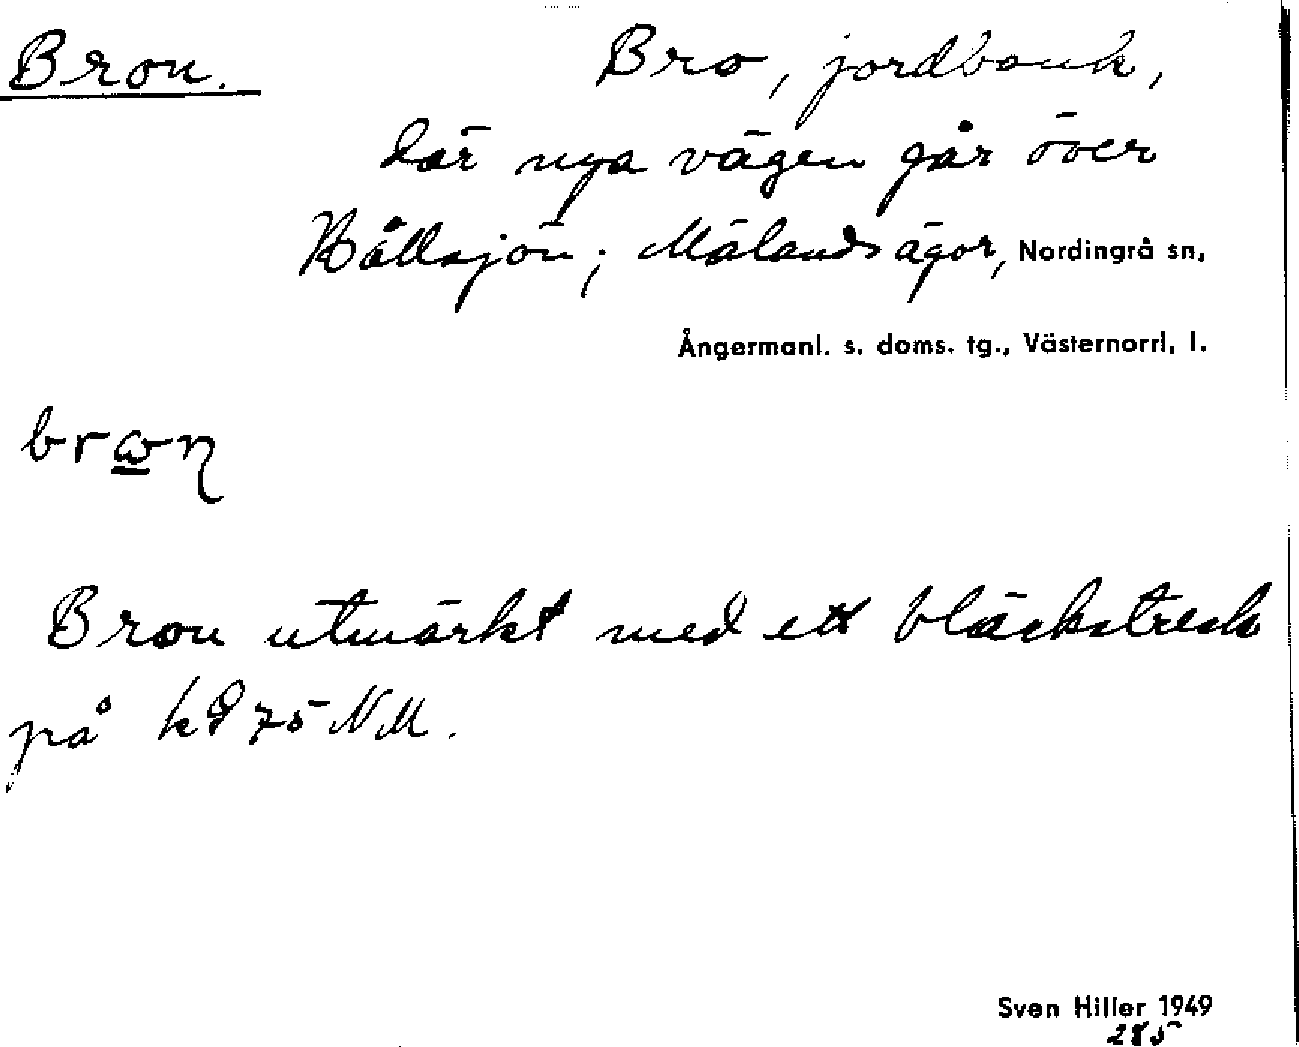 Bron.
Bro, jordbank,
där nya vägen går över
Kållsjön; Mälands ägor, Nordingrå sn,
Ångermanl. s. doms. tg., Västernorrl. l.
Bron utmärkt med ett bläckstreck
på kd 75 NM.
Sven Hiller 1949
285